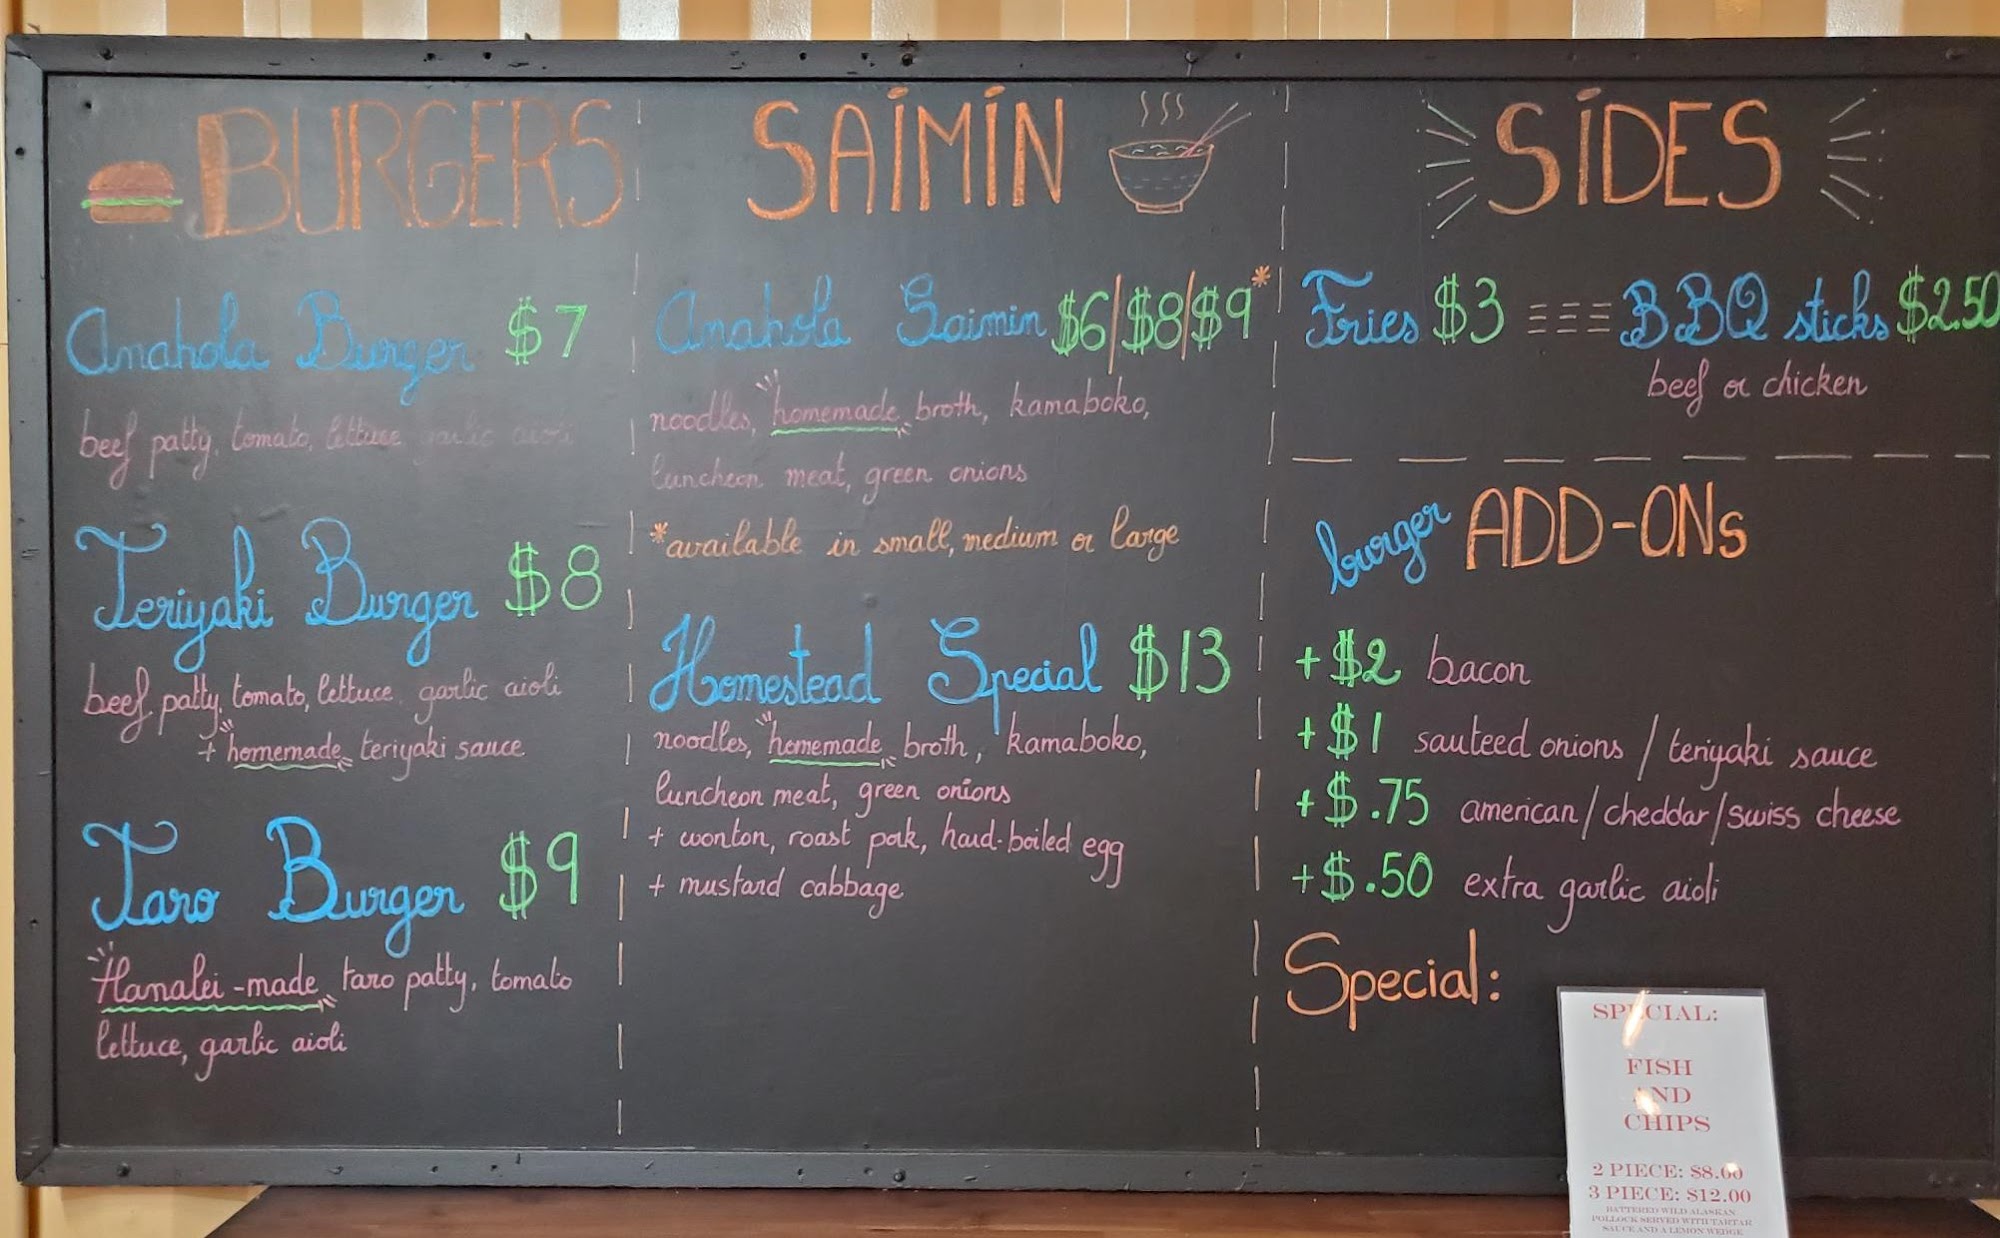 BURGERS
Anahola Burger $7
beef patty, tomato, lettuce garlic aioli
Teriyaki Burger $8
beef patty, tomato, lettuce, garlic aioli
+ homemade teriyaki sauce
Taro Burger $9
Hanalei-made taro patty, tomato
lettuce, garlic aioli
SAIMIN
Anahola Saimin $6/$8/$9*
noodles, homemade broth, kamaboko,
luncheon meat, green onions
*available in small, medium or large
Homestead Special $13
noodles, homemade broth, kamaboko,
luncheon meat, green onions
+ wonton, roast pork, hard-boiled egg
+ mustard cabbage
SIDES
Fries $3 BBQ sticks $2.50
beef or chicken
burger ADD-ONs
+$2 bacon
+$1 sauteed onions / teriyaki sauce
+$.75 american/cheddar/swiss cheese
+$.50 extra garlic aioli
Special:
SPECIAL:
FISH
AND
CHIPS
2 PIECE: $8.00
3 PIECE: $12.00
BATTERED WILD ALASKAN
POLLOCK SERVED WITH TARTAR
SAUCE AND A LEMON WEDGE